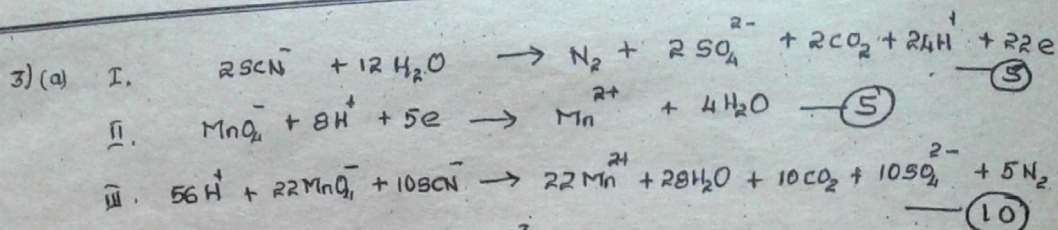 3)(a) I. 2SCN⁻ + 12H₂O → N₂ + 2SO₄²⁻ + 2CO₂ + 24H⁺ + 22e —(5)
II. MnO₄⁻ + 8H⁺ + 5e → Mn²⁺ + 4H₂O —(5)
III. 56H⁺ + 22MnO₄⁻ + 10SCN⁻ → 22Mn²⁺ + 28H₂O + 10CO₂ + 10SO₄²⁻ + 5N₂ —(10)